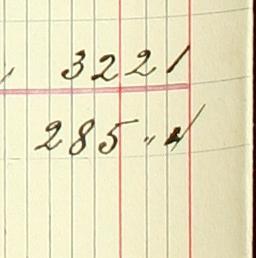 3221
285 "